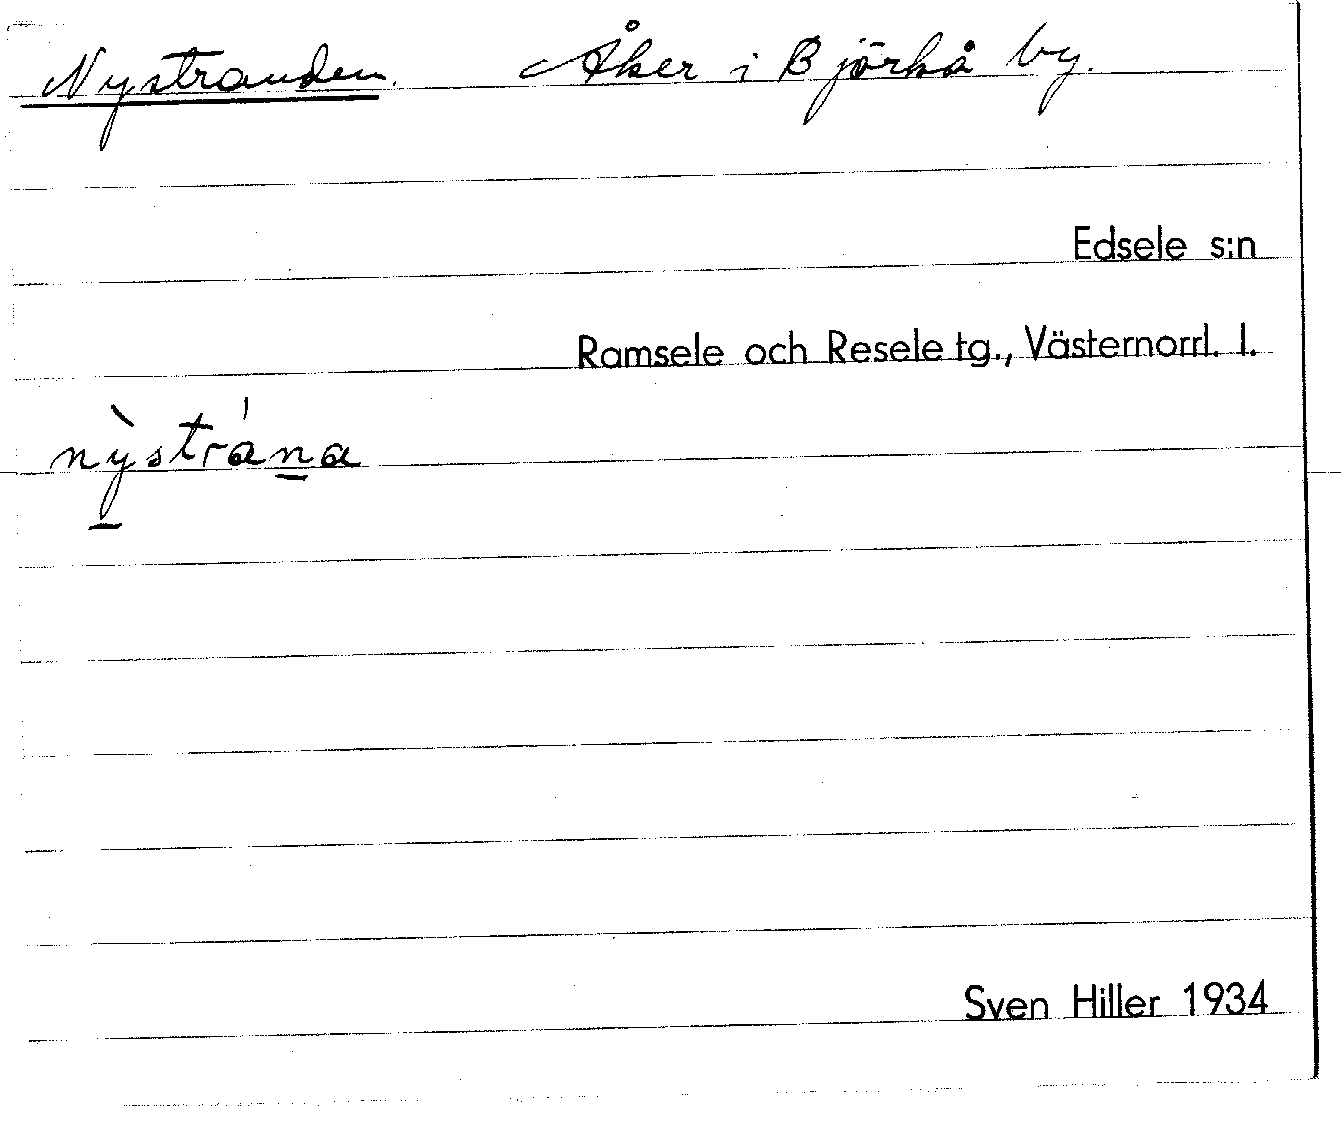 Nystranden. Åker i Björkå by.
Edsele s:n
Ramsele och Resele tg., Västernorrl. l.
nỳstrána
Sven Hiller 1934